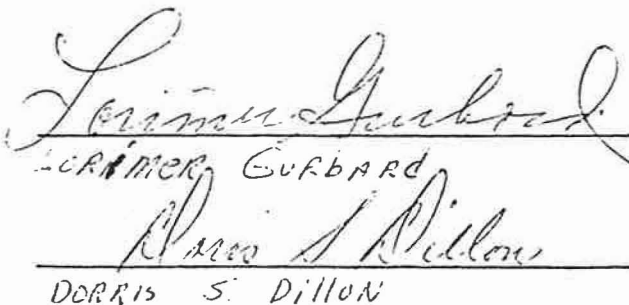 Lorimer Gurbard
LORIMER GURBARD
Doris S Dillon
DORRIS S. DILLON